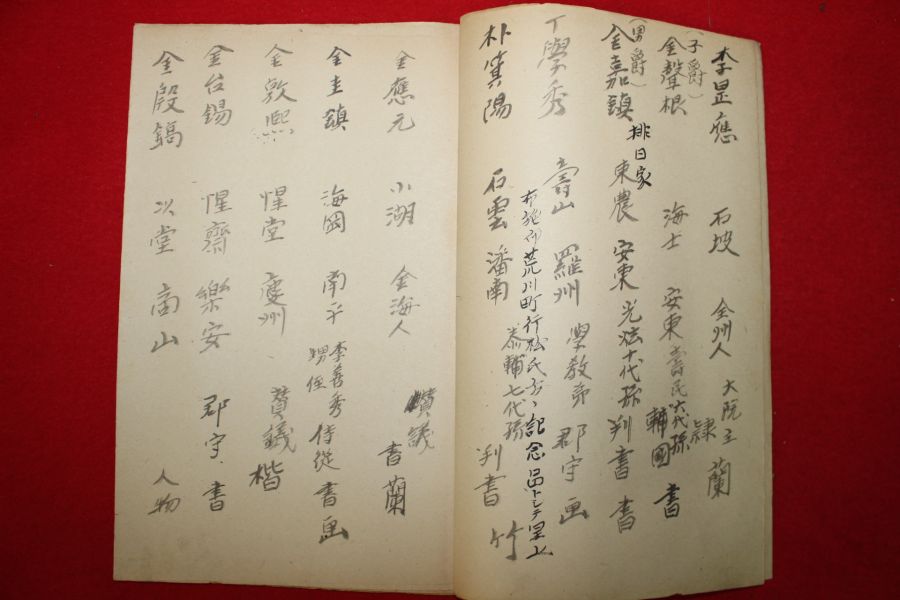 李昰應 石坡 全州人 大院王 隷 蘭
(子爵)
金聲根 海士 安東 壽民六代孫 輔國 書
(男爵)
金嘉鎮 東農 安東 光法十代孫 判書 書
排日家
丁學秀 壽山 羅州 學教弟 郡守 画
布施町荒川町行松氏方
記念品トシテ呈上
朴箕陽 石雲 潘南 泰輔七代孫 判書 竹
金應元 小湖 金海人 讃議 書蘭
金圭鎮 海岡 南平 李善秀 甥侄 侍從 書画
金敦熙 惺堂 慶州 賛議 楷
金台錫 惺齋 樂安 郡守 書
金殷鎬 以堂 商山 人物